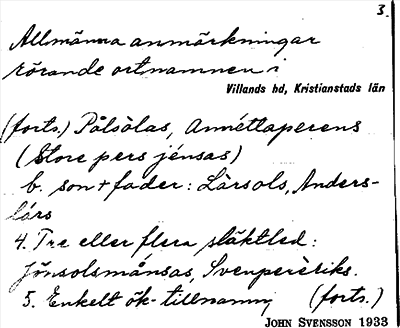 3.
Allmänna anmärkningar
rörande ortnamnen i
Villands hd, Kristianstads län
(forts.) Pålsólas, Annétlaperens
(Store pers jénsas)
b. son + fader: Làrsols, Anders-
lárs
4. Tre eller flera släktled:
Jönsolsmånsas, Svenperèriks.
5. Enkelt ök-tillnamn (forts.)
JOHN SVENSSON 1933